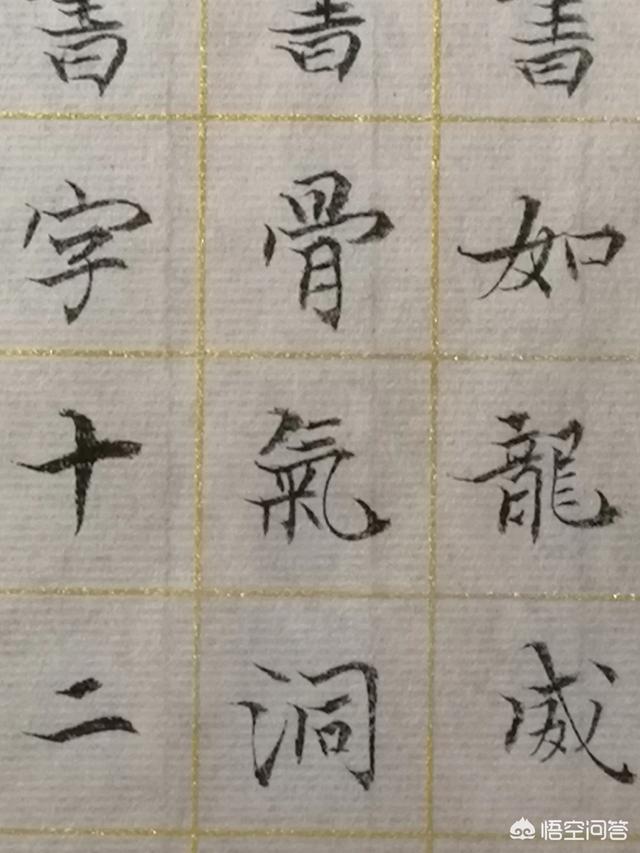 書如龍威
書骨氣洞
書字十二
悟空问答